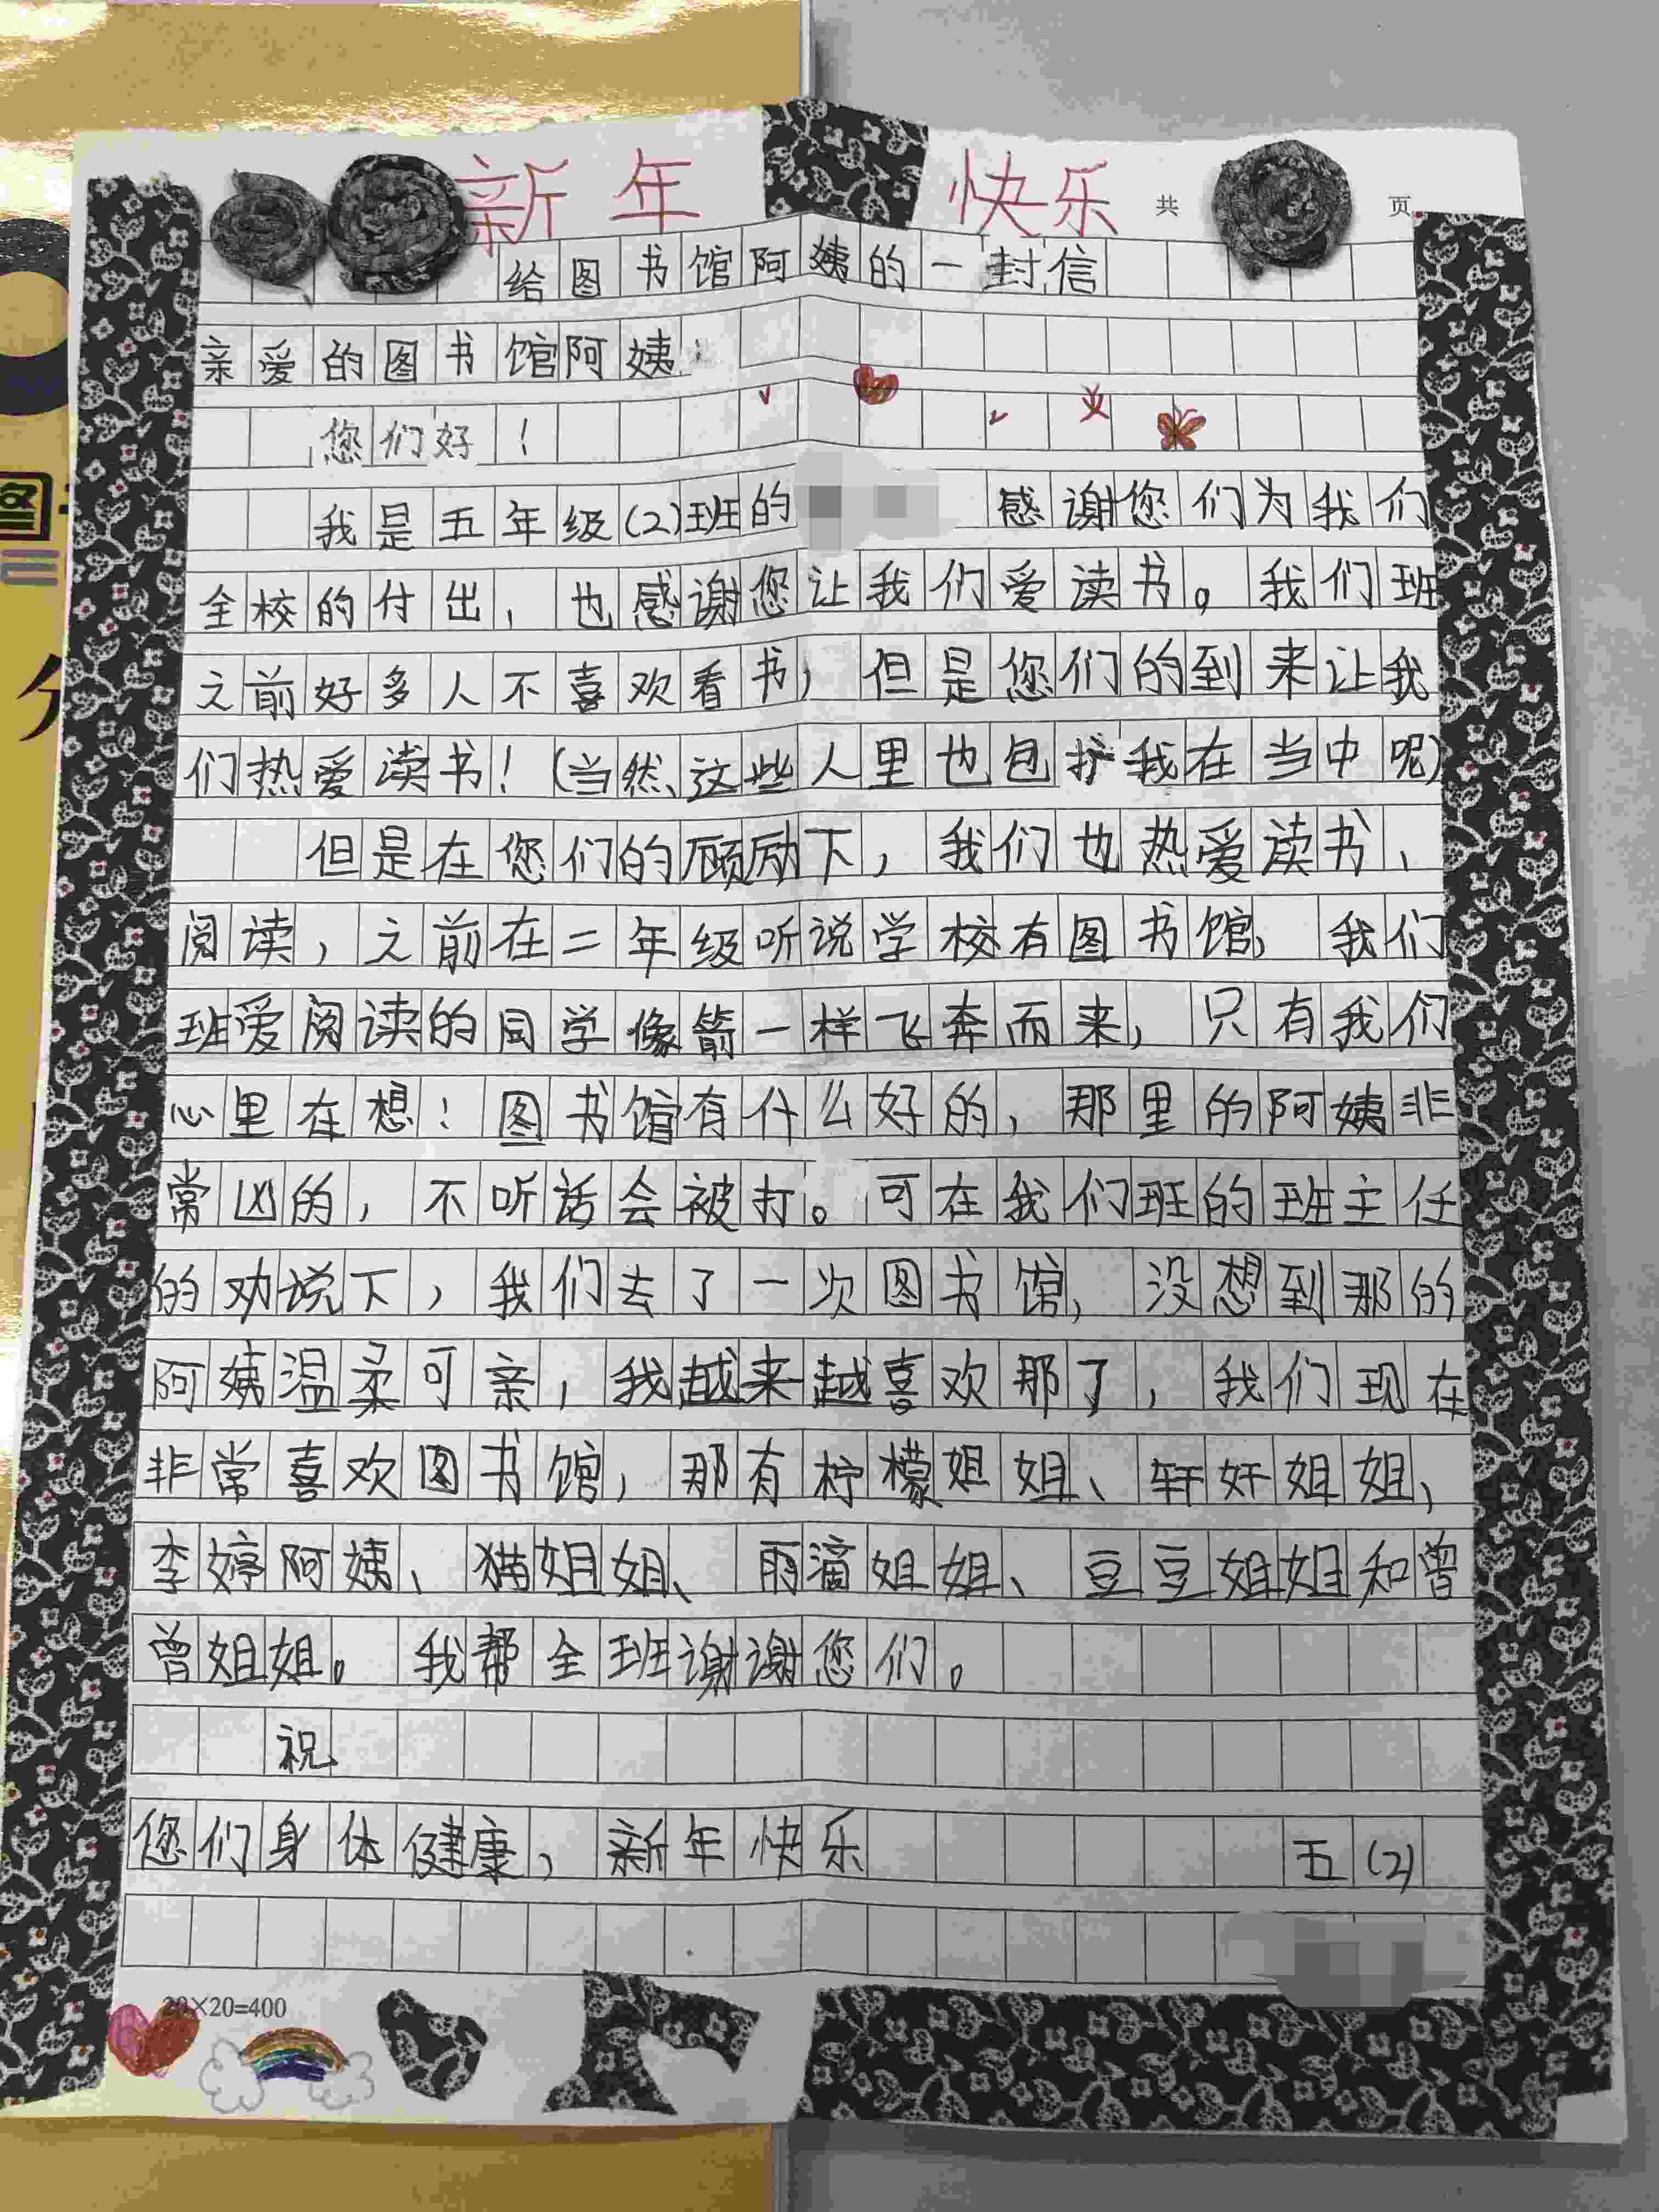 新年 快乐 共 页
给图书馆阿姨的一封信
亲爱的图书馆阿姨：
您们好！
我是五年级(2)班的 感谢您们为我们
全校的付出，也感谢您让我们爱读书。我们班
之前好多人不喜欢看书，但是您们的到来让我
们热爱读书！(当然这些人里也包护我在当中呢)
但是在您们的顾励下，我们也热爱读书、
阅读，之前在二年级听说学校有图书馆，我们
班爱阅读的同学像箭一样飞奔而来，只有我们
心里在想！图书馆有什么好的，那里的阿姨非
常凶的，不听话会被打。可在我们班的班主任
的劝说下，我们去了一次图书馆，没想到那的
阿姨温柔可亲，我越来越喜欢那了，我们现在
非常喜欢图书馆，那有柠檬姐姐、轩奸姐姐、
李婷阿姨、猫姐姐、雨滴姐姐、豆豆姐姐和曾
曾姐姐。我帮全班谢谢您们。
祝
您们身体健康，新年快乐 五(2)
20×20=400